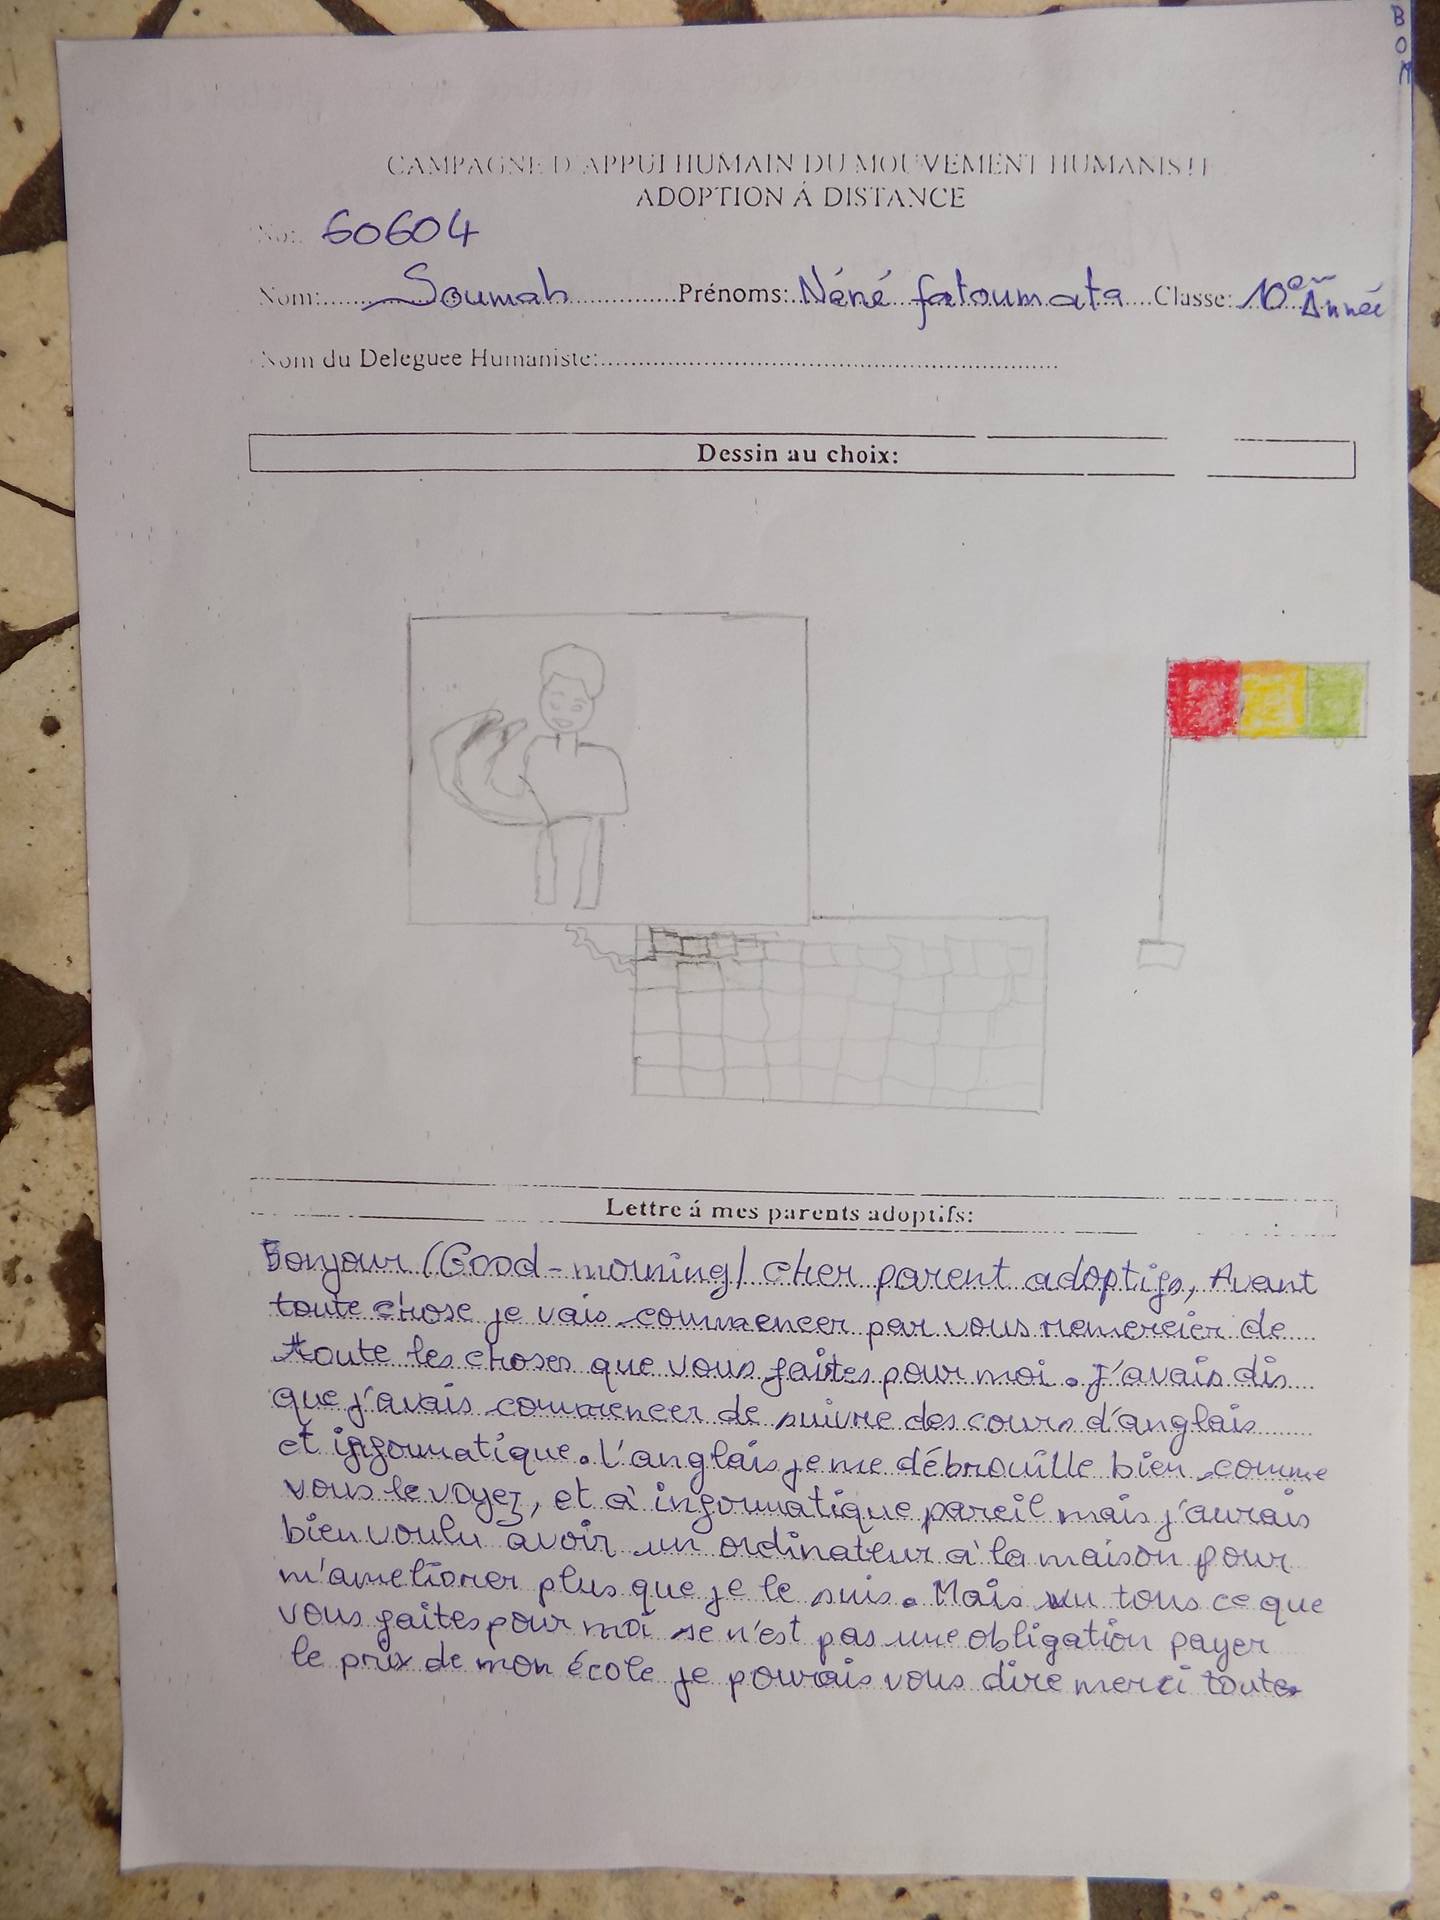 B
O
M
CAMPAGNE D'APPUI HUMAIN DU MOUVEMENT HUMANISTE
ADOPTION Á DISTANCE
No: 60604
Nom: Soumah Prénoms: Néné fatoumata Classe: 10e Année
Nom du Deleguee Humaniste:
Dessin au choix:
Lettre á mes parents adoptifs:
Bonjour (Good-morning) cher parent adoptifs, Avant
toute chose je vais commencer par vous remercier de
toute les choses que vous faites pour moi. J'avais dis
que j'avais commencer de suivre des cours d'anglais
et informatique. L'anglais je me débrouille bien comme
vous le voyez, et à informatique pareil mais j'aurais
bien voulu avoir un ordinateur à la maison pour
m'ameliorer plus que je le suis. Mais vu tous ce que
vous faites pour moi se n'est pas une obligation payer
le prix de mon école je pourais vous dire merci toute